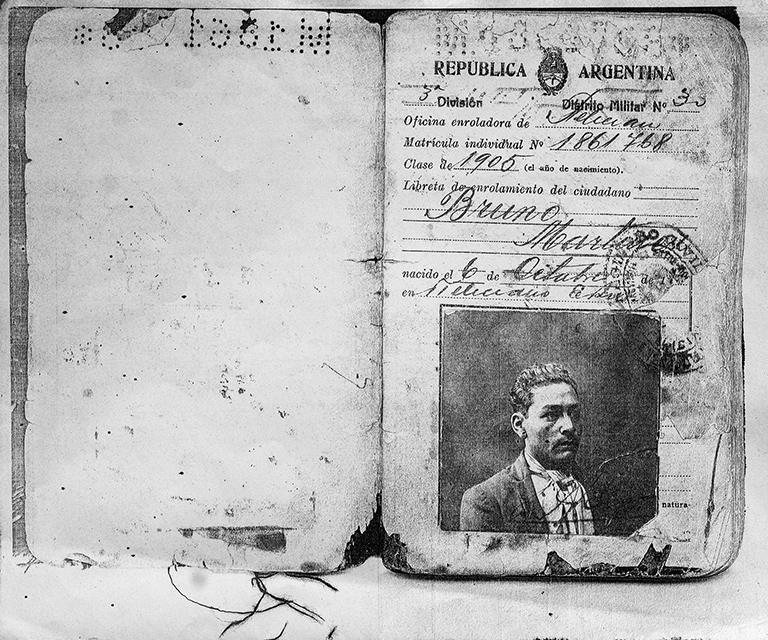 REPÚBLICA ARGENTINA
3ª División Distrito Militar Nº 33
Oficina enroladora de Feliciano
Matrícula individual Nº 1861768
Clase de 1905 (el año de nacimiento).
Libreta de enrolamiento del ciudadano
Bruno
nacido el 6 de Octubre de
en Feliciano
natura-